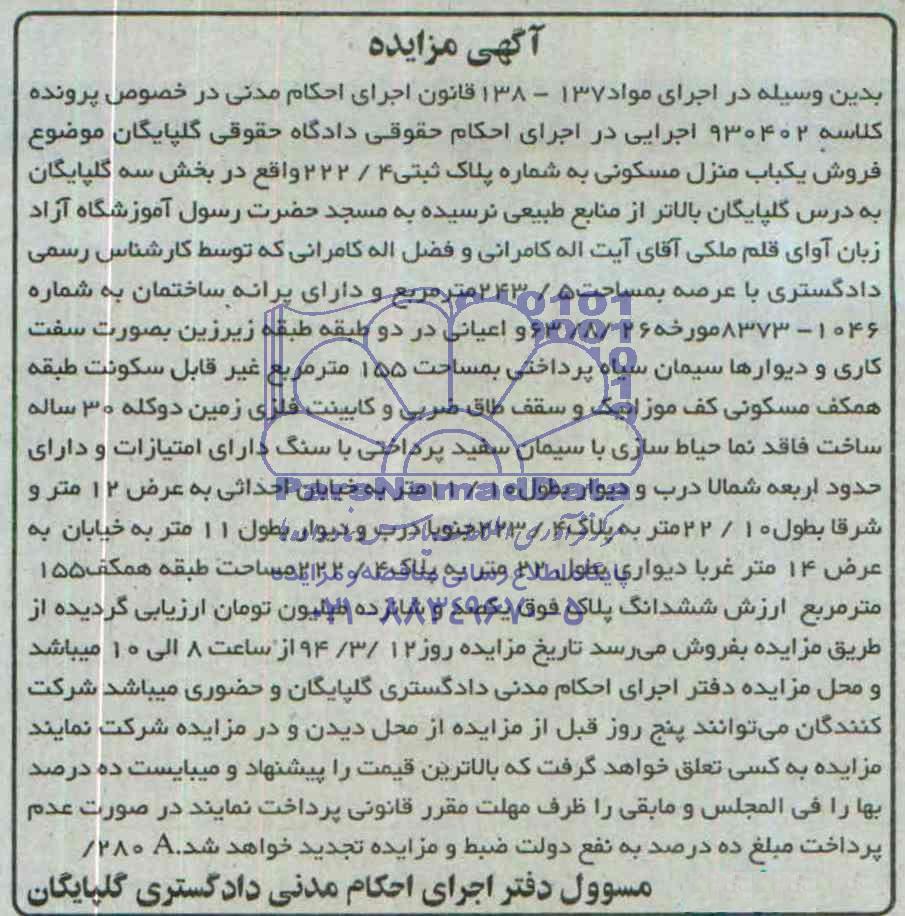 آگهی مزایده
بدین وسیله در اجرای مواد۱۳۷ - ۱۳۸قانون اجرای احکام مدنی در خصوص پرونده
کلاسه ۹۳۰۴۰۲ اجرایی در اجرای احکام حقوقی دادگاه حقوقی گلپایگان موضوع
فروش یکباب منزل مسکونی به شماره پلاک ثبتی۴ / ۲۲۲واقع در بخش سه گلپایگان
به درس گلپایگان بالاتر از منابع طبیعی نرسیده به مسجد حضرت رسول آموزشگاه آزاد
زبان آوای قلم ملکی آقای آیت اله کامرانی و فضل اله کامرانی که توسط کارشناس رسمی
دادگستری با عرصه بمساحت۵ / ۲۴۳مترمربع و دارای پرانه ساختمان به شماره
۱۰۴۶- ۸۳۷۳مورخه۲۶ /۸/ ۶۳و اعیانی در دو طبقه طبقه زیرزین بصورت سفت
کاری و دیوارها سیمان سیاه پرداختی بمساحت ۱۵۵ مترمربع غیر قابل سکونت طبقه
همکف مسکونی کف موزاییک و سقف طاق ضربی و کابینت فلزی زمین دوکله ۳۰ ساله
ساخت فاقد نما حیاط سازی با سیمان سفید پرداختی با سنگ دارای امتیازات و دارای
حدود اربعه شمالا درب و دیوار بطول۱۰ / ۱۱متر به خیابان احداثی به عرض ۱۲ متر و
شرقا بطول۱۰ / ۲۲متر به پلاک۴ / ۲۲۳جنوبا درب و دیوار بطول ۱۱ متر به خیابان به
عرض ۱۴ متر غربا دیواری بطول ۲۲ متر به پلاک۴ / ۲۲۲مساحت طبقه همکف۱۵۵
مترمربع ارزش ششدانگ پلاک فوق یکصد و شانزده میلیون تومان ارزیابی گردیده از
طریق مزایده بفروش می‌رسد تاریخ مزایده روز۱۲ /۳/ ۹۴از ساعت ۸ الی ۱۰ میباشد
و محل مزایده دفتر اجرای احکام مدنی دادگستری گلپایگان و حضوری میباشد شرکت
کنندگان می‌توانند پنج روز قبل از مزایده از محل دیدن و در مزایده شرکت نمایند
مزایده به کسی تعلق خواهد گرفت که بالاترین قیمت را پیشنهاد و میبایست ده درصد
بها را فی المجلس و مابقی را ظرف مهلت مقرر قانونی پرداخت نمایند در صورت عدم
پرداخت مبلغ ده درصد به نفع دولت ضبط و مزایده تجدید خواهد شد.A ۲۸۰/
مسوول دفتر اجرای احکام مدنی دادگستری گلپایگان
ParsNamadData
پایگاه اطلاع رسانی مناقصه و مزایده
۰۲۱-۸۸۳۴۹۶۷۰-۵